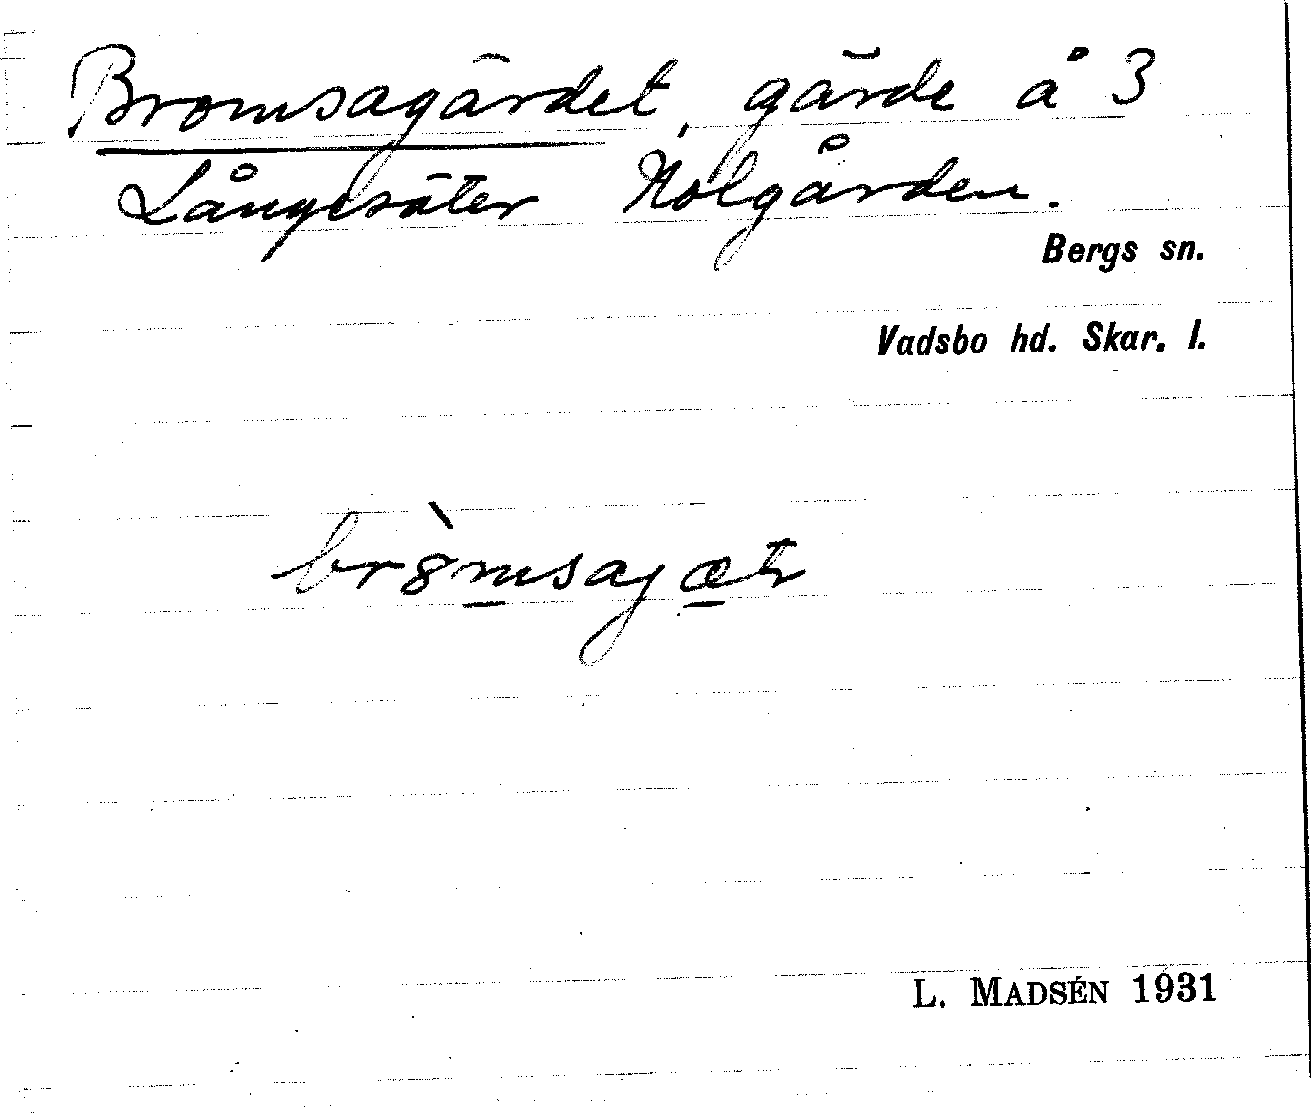 Bromsagärdet, gärde å 3
Långesäter Nolgården.
Bergs sn.
Vadsbo hd. Skar. l.
L. MADSÉN 1931